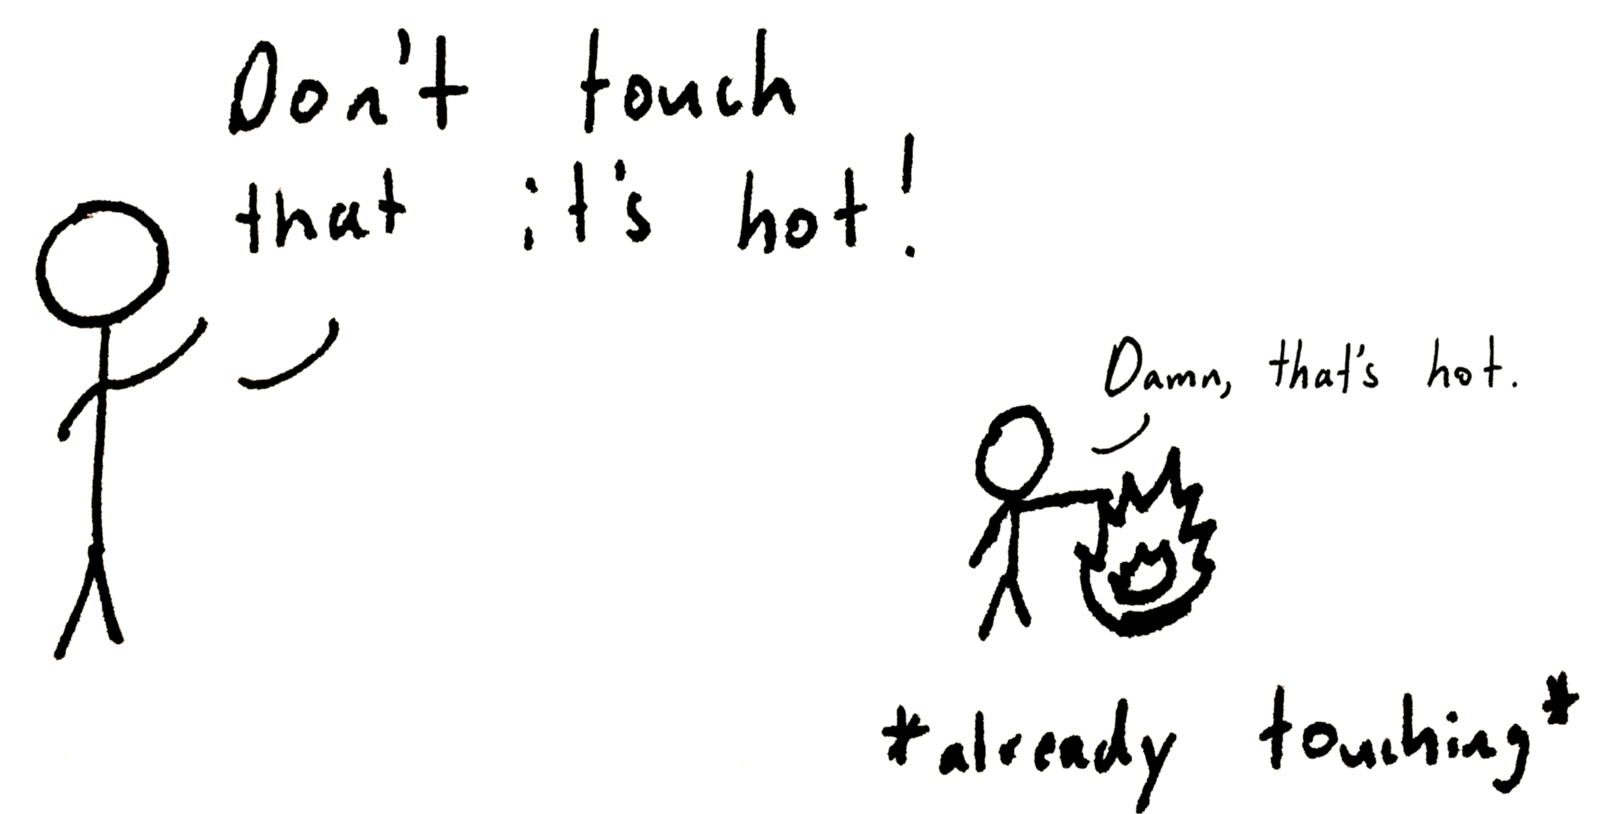 Don't touch
that it's hot!
Damn, that's hot.
*already touching*